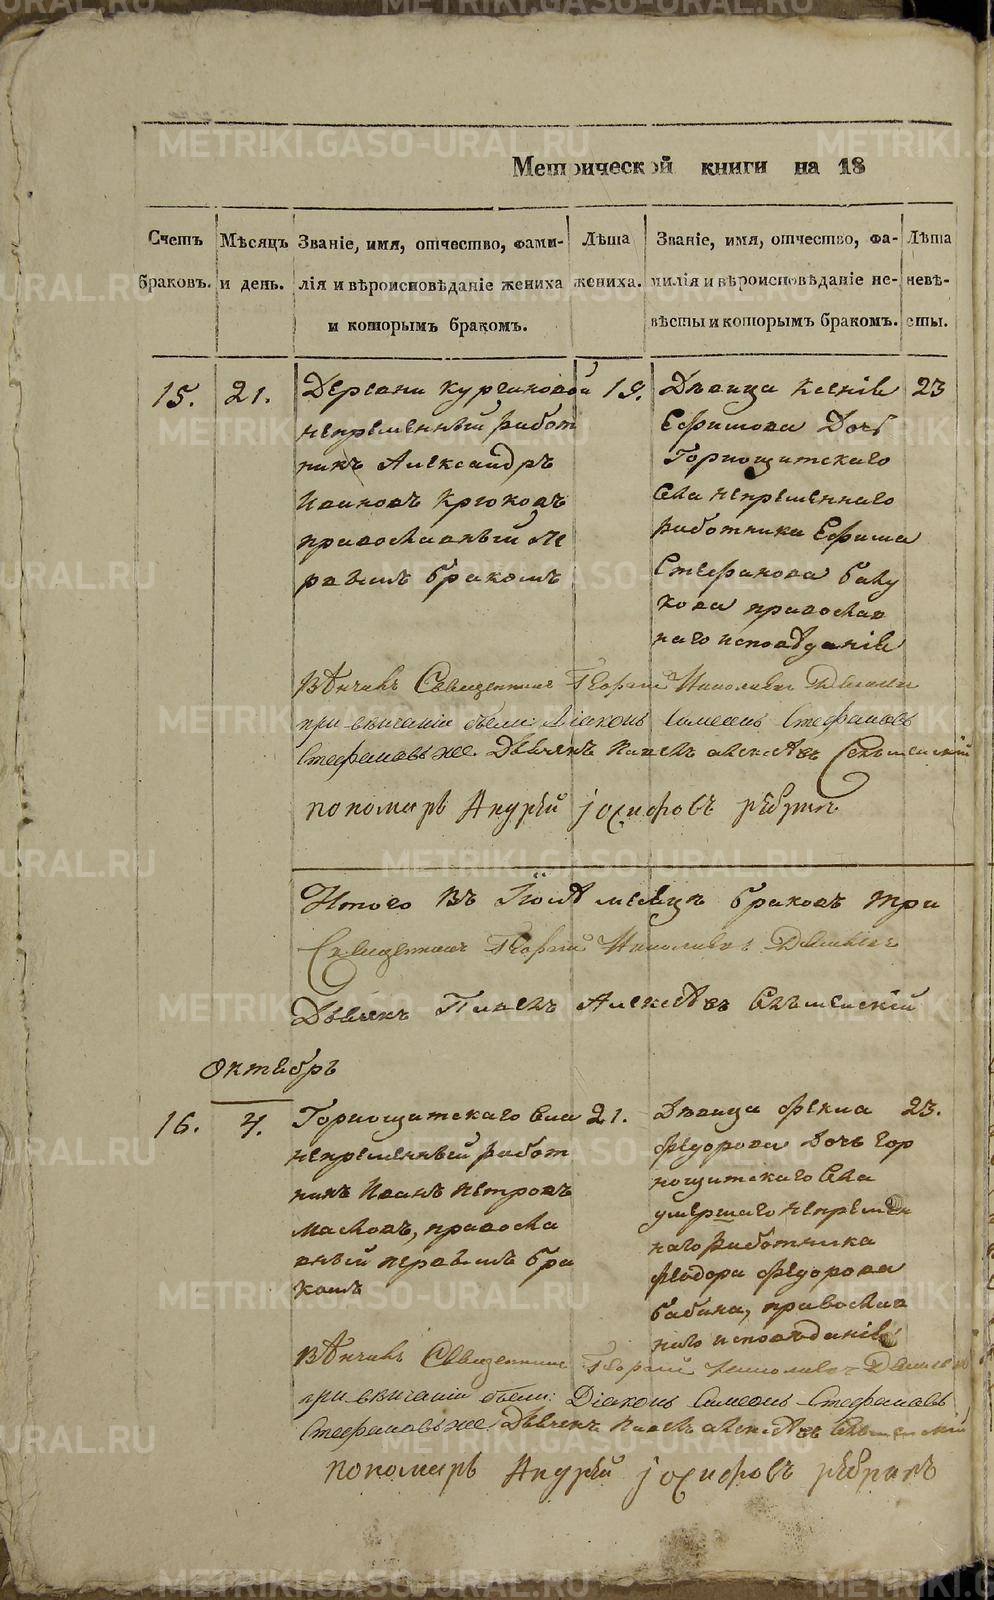 Метрической книги на 18
Счетъ браковъ.
Мѣсяцъ и день.
Званіе, имя, отчество, фами-
лія и вѣроисповѣданіе жениха
и которымъ бракомъ.
Лѣта
жениха.
Званіе, имя, отчество, фа-
милія и вѣроисповѣданіе не-
вѣсты и которымъ бракомъ.
Лѣта
невѣ-
сты.
15.
21.
Деревни Кургановой
непременный работ
никъ Александръ
Ивановъ Крюковъ
православный пе
рвымъ бракомъ
19.
Дѣвица Ксенія
Ефимова Дочь
Горнощитскаго
села непременнаго
работника Ефима
Стефанова
православ
наго исповѣданія
23
Вѣнчалъ Священникъ Георгій
при вѣнчаніи были: Діаконъ Симеонъ Стефановъ
Стефановъ же Дьячекъ Павелъ Алексѣевъ
пономарь Андрей
Итого въ Іюлѣ месяцѣ браковъ три
Священникъ Георгій
Дьячекъ Павелъ Алексѣевъ
Октябрь
16.
4.
Горнощитскаго села
непременный работ
никъ Иванъ Петровъ
Масловъ, правосла
вный первымъ бра
комъ
21.
Дѣвица Фекла
Федорова Дочь Гор
нощитскаго села
умершаго непремен
наго работника
Феодора Федорова
Бабина, православ
наго исповѣданія
23.
Вѣнчалъ Священникъ Георгій
при вѣнчаніи были: Діаконъ Симеонъ Стефановъ
Стефановъ же Дьячекъ Павелъ Алексѣевъ
пономарь Андрей
METRIKI.GASO-URAL.RU